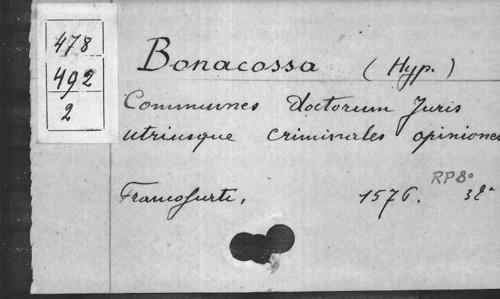 478
492
2
Bonacossa (Hyp.)
Communes doctorum Juris
utriusque criminales opiniones
RP8°
Francofurti, 1576.